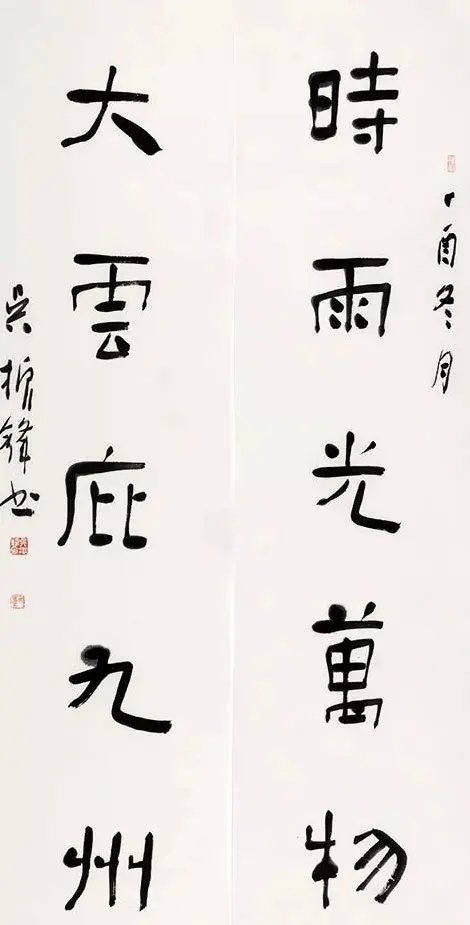 丁酉冬月
時雨光萬物
大雲庇九州
吴振鋒书